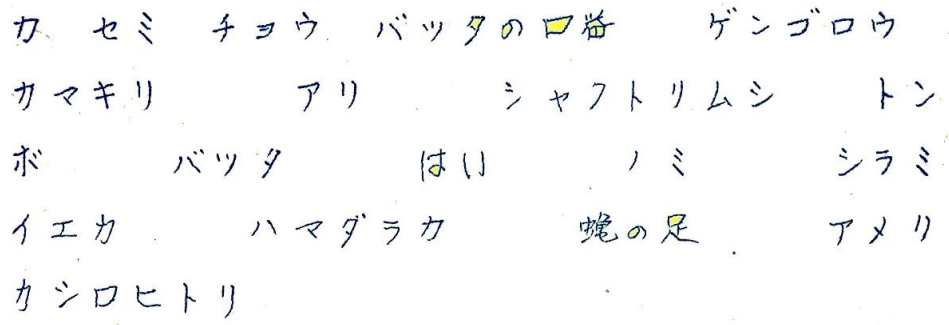 カ セミ チョウ バッタの口器 ゲンゴロウ
カマキリ アリ シャクトリムシ トン
ボ バッタ はい ノミ シラミ
イエカ ハマダラカ 蝿の足 アメリ
カシロヒトリ